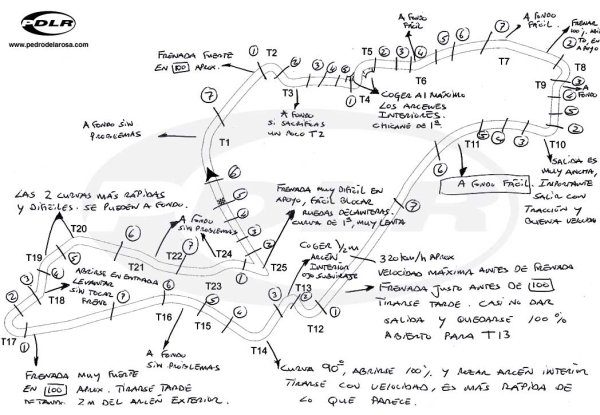 PDLR
www.pedrodelarosa.com
FRENADA FUERTE
EN 100 APROX.
T2
T3
T4
T5
T6
T7
T8
T9
T10
A FONDO
FÁCIL
A FONDO
FÁCIL.
FRENAR
A
FONDO
A FONDO
SI SACRIFICAS
UN POCO T2
COGER AL MÁXIMO
LOS ARCENES
INTERIORES.
CHICANE DE 1ª
A FONDO SIN
PROBLEMAS
T1
T11
A FONDO FÁCIL.
SALIDA ES
MUY ANCHA,
IMPORTANTE
SALIR CON
TRACCIÓN Y
BUENA VELOCIDAD
LAS 2 CURVAS MÁS RÁPIDAS
Y DIFÍCILES. SE PUEDEN A FONDO.
A FONDO
SIN PROBLEMAS
FRENADA MUY DIFÍCIL EN
APOYO, FÁCIL BLOCAR
RUEDAS DELANTERAS.
CURVA DE 1ª, MUY LENTA
T20
T19
T18
T21
T22
T23
T24
T25
ABRIRSE EN ENTRADA
LEVANTAR
SIN TOCAR
FRENO
COGER 1/2 m
ARCÉN
INTERIOR
OJO SUBVIRAJE
320 km/h APROX
VELOCIDAD MÁXIMA ANTES DE FRENADA
FRENADA JUSTO ANTES DE 100
TIRARSE TARDE. CASI NO DAR
SALIDA Y QUEDARSE 100%
ABIERTO PARA T13
T13
T12
T14
T15
T16
T17
A FONDO
SIN PROBLEMAS
FRENADA MUY FUERTE
EN 100 APROX. TIRARSE TARDE
2m DEL ARCÉN EXTERIOR.
CURVA 90°, ABRIRSE 100% Y ROZAR ARCÉN INTERIOR
TIRARSE CON VELOCIDAD, ES MÁS RÁPIDA DE
LO QUE PARECE.